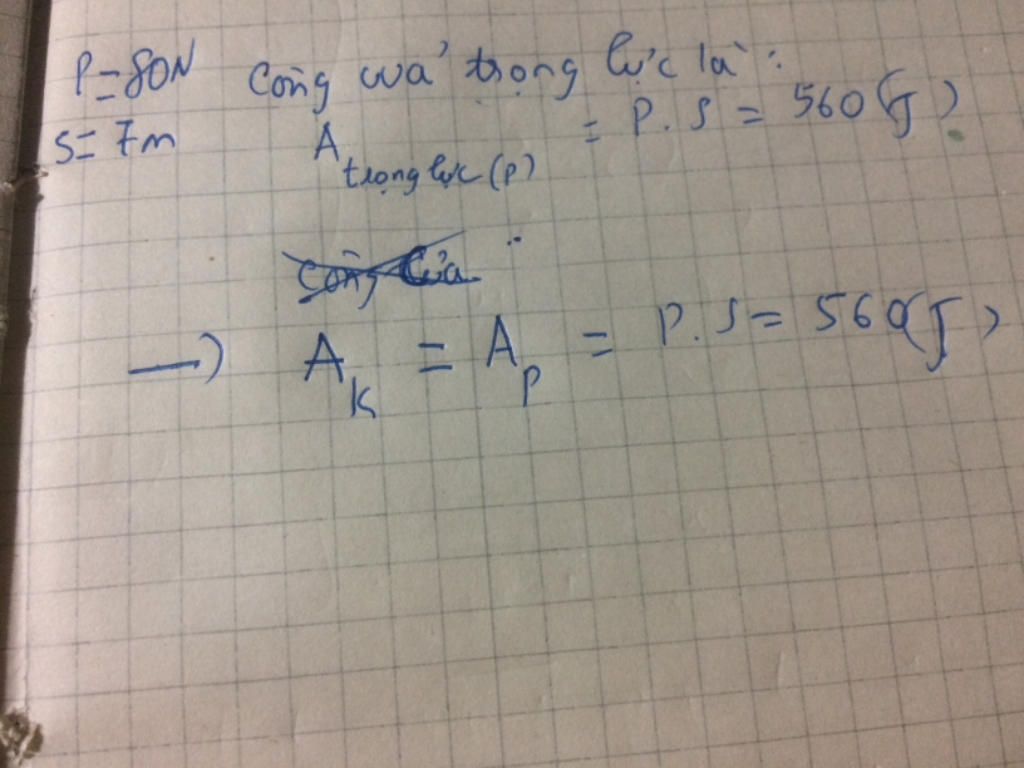 P=80N Công của trọng lực là:
S= 7m A trọng lực (P) = P.S = 560 (J)
Công của
→ A_K = A_P = P.S = 560 (J)